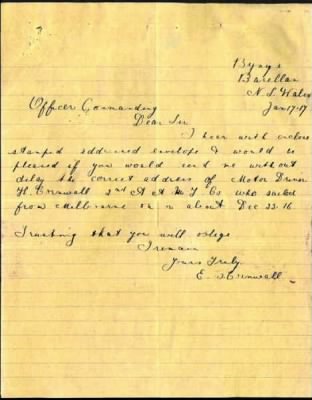 Byngs
Barellan
N. S. Wales
Jan 17-17
Officer Commanding
Dear Sir
I herewith enclose
stamped addressed envelope & would be
pleased if you would send me without
delay the correct address of Motor Driver
H. Cornwall 2nd A A M T Co who sailed
from Melbourne on or about Dec 23.16
Trusting that you will oblige
I remain
Yours Truly
E. Cornwall